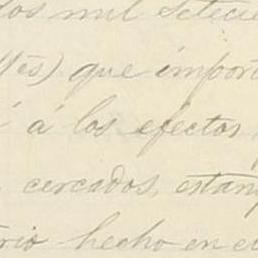 dos mil setecie
tés) que import
á los efectos
cercados, estan
rio hecho en el